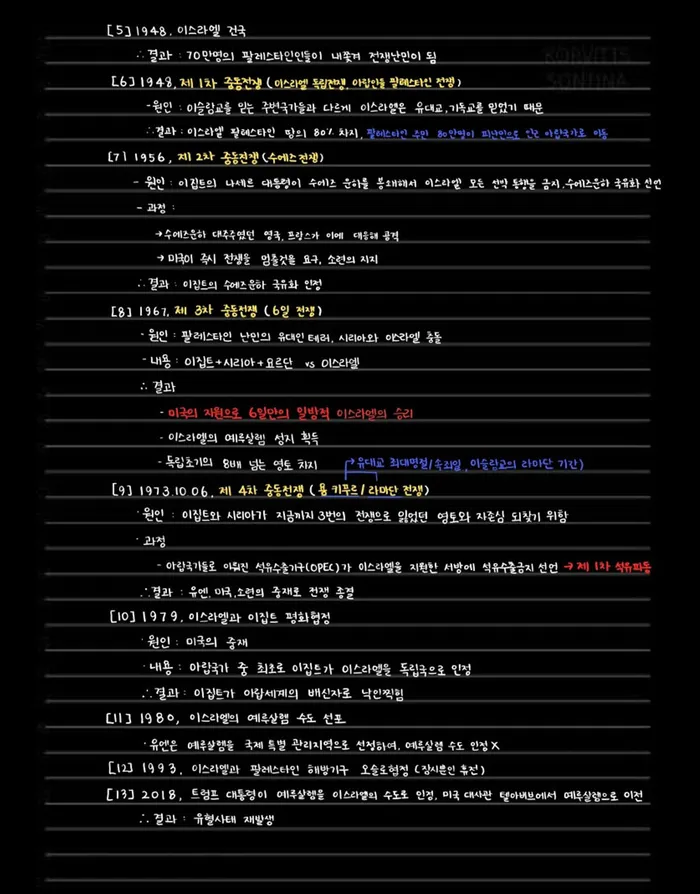 [5] 1948, 이스라엘 건국
∴ 결과 : 70만명의 팔레스타인인들이 내쫓겨 전쟁난민이 됨
[6] 1948, 제 1차 중동전쟁 (이스라엘 독립전쟁, 아랍인들 팔레스타인 전쟁)
-원인 : 이슬람교를 믿는 주변국가들과 다르게 이스라엘은 유대교,기독교를 믿었기 때문
∴결과 : 이스라엘 팔레스타인 땅의 80% 차지, 팔레스타인 주민 80만명이 피난민으로 인근 아랍국가로 이동
[7] 1956, 제 2차 중동전쟁 (수에즈전쟁)
- 원인 : 이집트의 나세르 대통령이 수에즈 운하를 봉쇄해서 이스라엘 모든 선박 통행을 금지, 수에즈운하 국유화 선언
- 과정 :
→수에즈운하 대주주였던 영국, 프랑스가 이에 대응해 공격
→ 미국이 즉시 전쟁을 멈출것을 요구, 소련의 지지
∴ 결과 : 이집트의 수에즈운하 국유화 인정
[8] 1967, 제 3차 중동전쟁 (6일 전쟁)
- 원인 : 팔레스타인 난민의 유대인 테러, 시리아와 이스라엘 충돌
- 내용 : 이집트+시리아+요르단 vs 이스라엘
∴ 결과
- 미국의 지원으로 6일만의 일방적 이스라엘의 승리
- 이스라엘의 예루살렘 성지 획득
- 독립초기의 8배 넘는 영토 차지
→유대교 최대명절/속죄일, 이슬람교의 라마단 기간)
[9] 1973.10.06, 제 4차 중동전쟁 (욤 키푸르/라마단 전쟁)
· 원인 : 이집트와 시리아가 지금까지 3번의 전쟁으로 잃었던 영토와 자존심 되찾기 위함
· 과정
- 아랍국가들로 이뤄진 석유수출기구(OPEC)가 이스라엘을 지원한 서방에 석유수출금지 선언 → 제 1차 석유파동
∴결과 : 유엔, 미국,소련의 중재로 전쟁 종결
[10] 1979, 이스라엘과 이집트 평화협정
· 원인 : 미국의 중재
· 내용 : 아랍국가 중 최초로 이집트가 이스라엘을 독립국으로 인정
∴결과 : 이집트가 아랍세계의 배신자로 낙인찍힘
[11] 1980, 이스라엘의 예루살렘 수도 선포
· 유엔은 예루살렘을 국제 특별 관리지역으로 선정하여, 예루살렘 수도 인정 X
[12] 1993, 이스라엘과 팔레스타인 해방기구 오슬로협정 (잠시뿐인 휴전)
[13] 2018, 트럼프 대통령이 예루살렘을 이스라엘의 수도로 인정, 미국 대사관 텔아비브에서 예루살렘으로 이전
∴ 결과 : 유혈사태 재발생